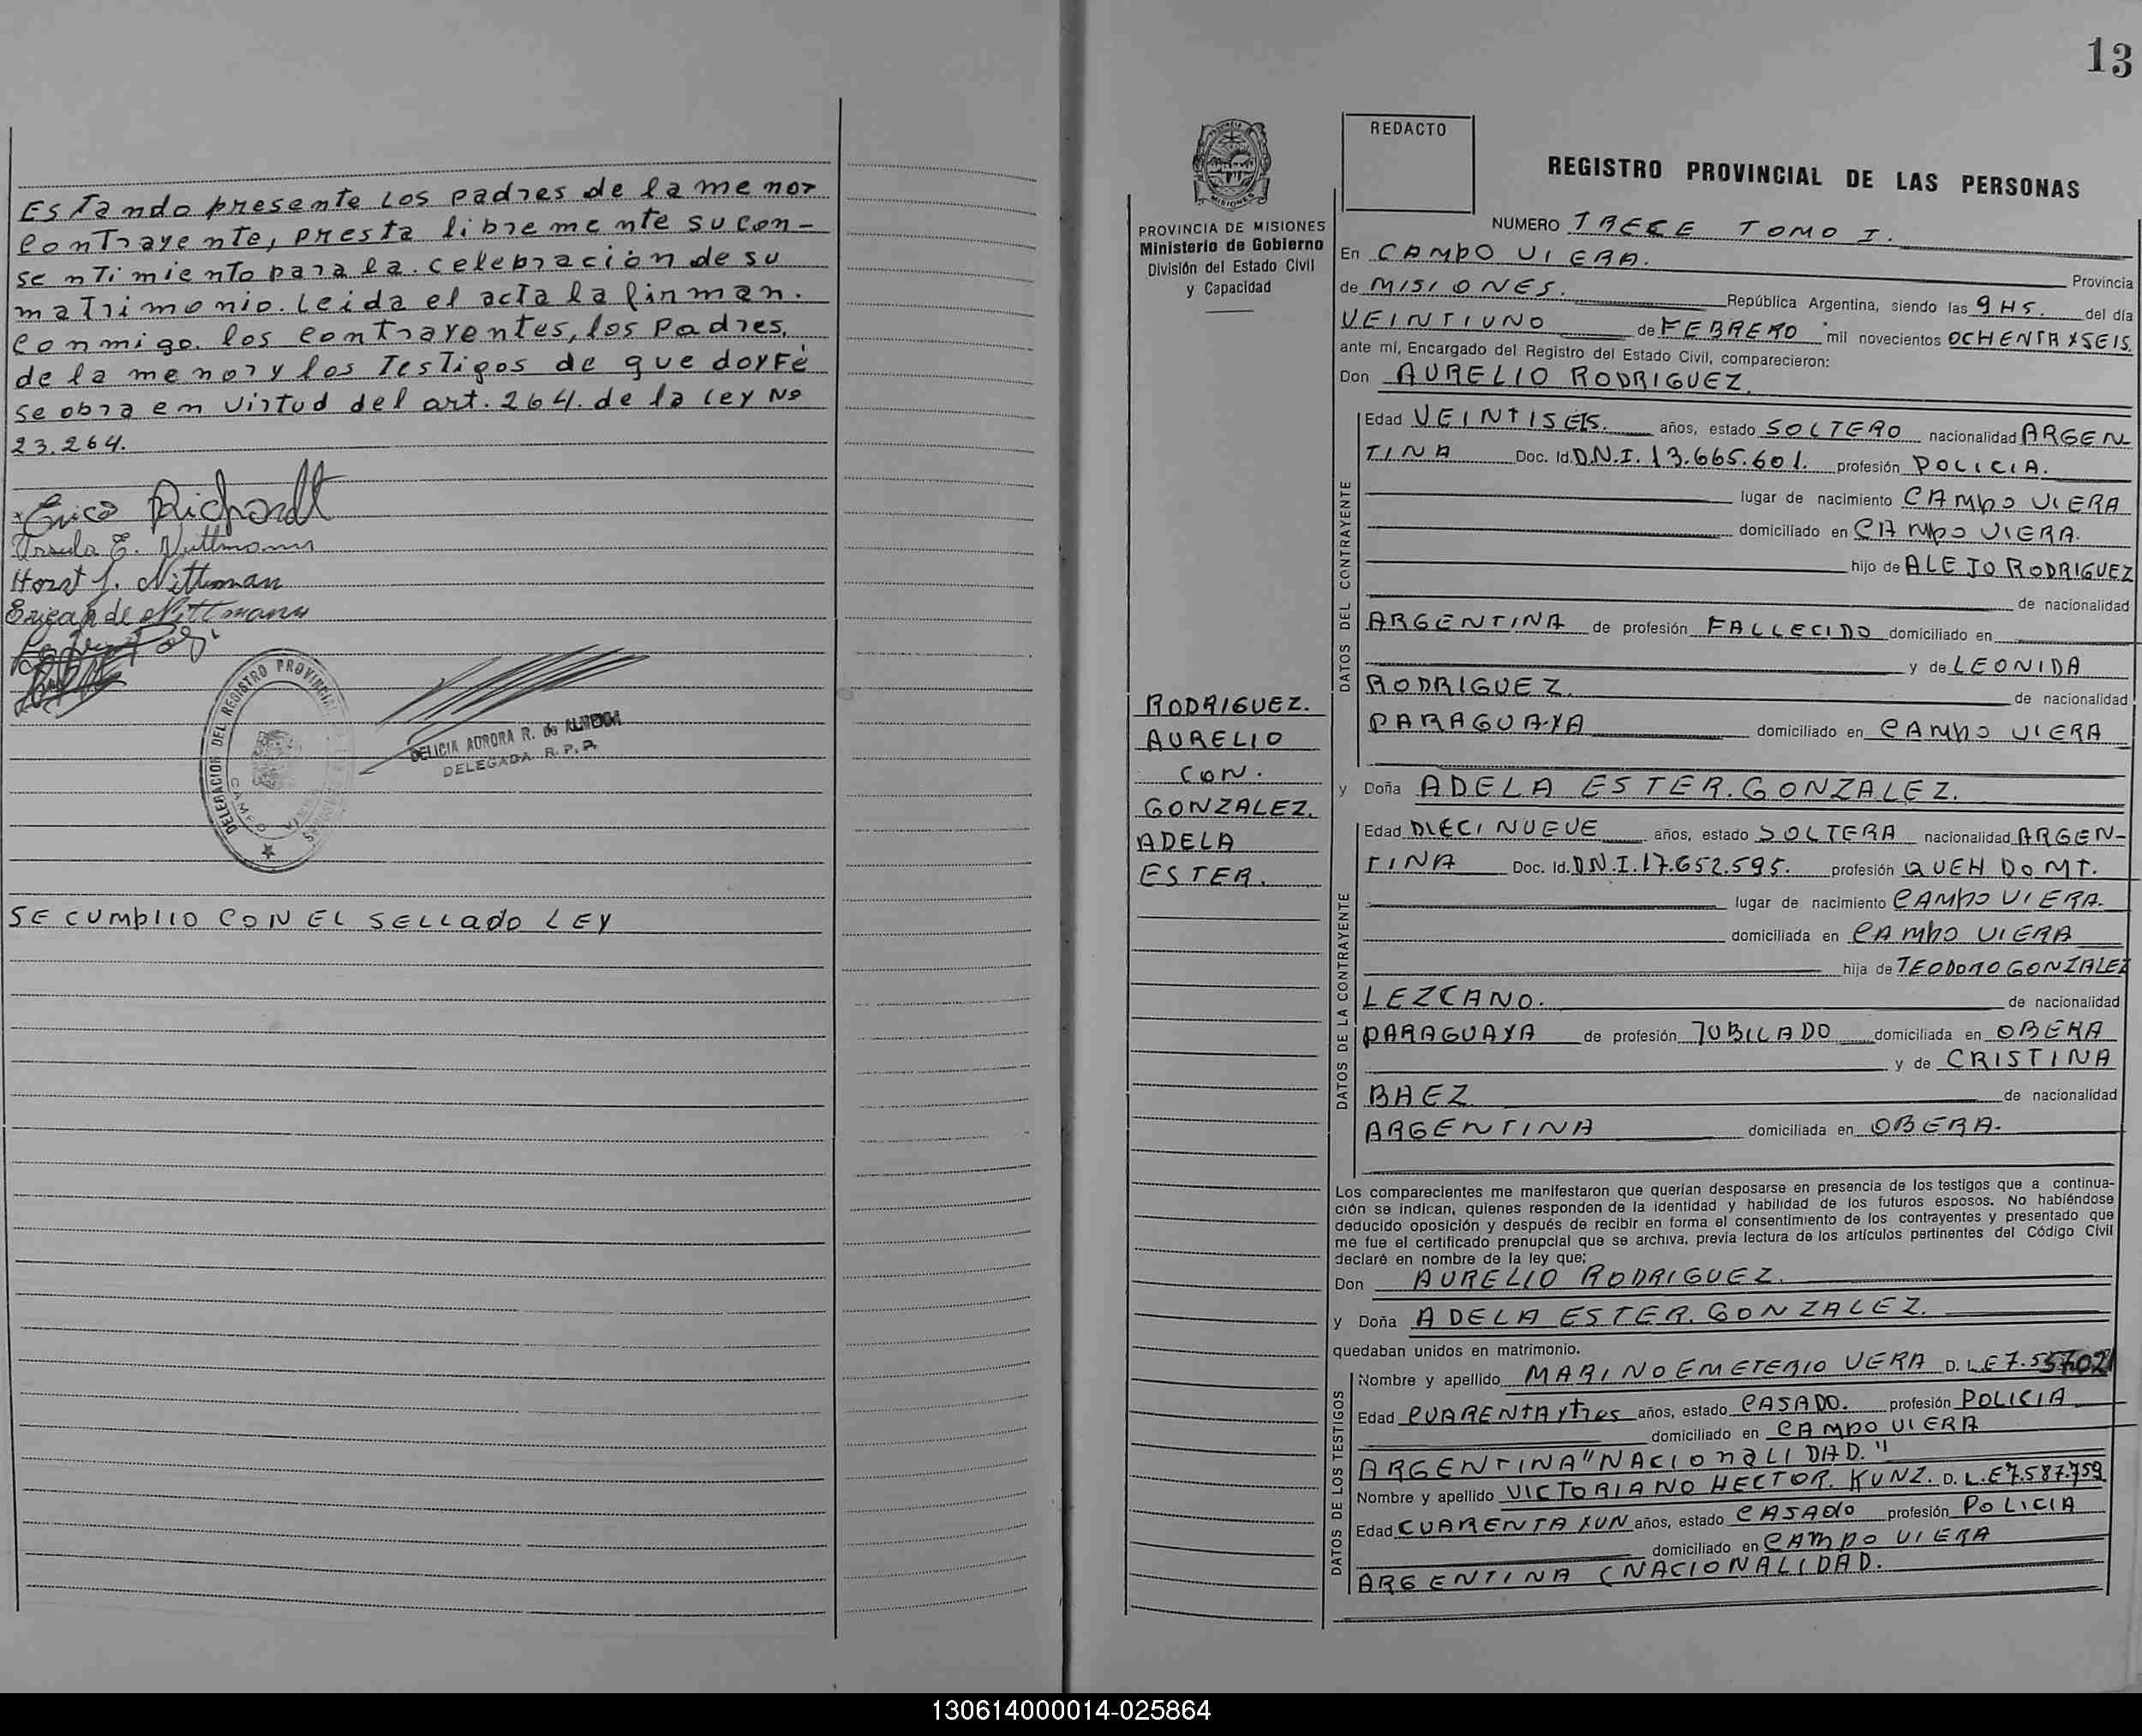 Estando presente los padres de la menor
contrayente, presta libremente su con-
sentimiento para la celebración de su
matrimonio. Leida el acta la firman.
conmigo. los contrayentes, los Padres.
de la menor y los Testigos de que doy Fé
se obra en virtud del art. 264. de la Ley Nº
23.264.
Erico Richardt
Ursula E. Nittmann
Horst J. Nittman
Erica de Nittmann
DELEGACION DEL REGISTRO PROVINCIAL DE LAS PERSONAS
CAMPO VIERA
DELICIA AURORA R. de ALMEIDA
DELEGADA R. P. P.
SE CUMPLIO CON EL SELLAdo LEY
13
PROVINCIA DE MISIONES
Ministerio de Gobierno
División del Estado Civil
y Capacidad
RODRIGUEZ.
AURELIO
CON.
GONZALEZ.
ADELA
ESTER.
REDACTO
REGISTRO PROVINCIAL DE LAS PERSONAS
NUMERO TRECE TOMO I.
En CAMPO VIERA. Provincia
de MISIONES. República Argentina, siendo las 9 HS. del día
VEINTIUNO de FEBRERO mil novecientos OCHENTA Y SEIS.
ante mí, Encargado del Registro del Estado Civil, comparecieron:
Don AURELIO RODRIGUEZ.
DATOS DEL CONTRAYENTE
Edad VEINTISEIS. años, estado SOLTERO nacionalidad ARGEN
TINA Doc. Id. D.N.I. 13.665.601. profesión POLICIA.
lugar de nacimiento CAMPO VIERA
domiciliado en CAMPO VIERA.
hijo de ALEJO RODRIGUEZ
de nacionalidad
ARGENTINA de profesión FALLECIDO domiciliado en
y de LEONIDA
RODRIGUEZ. de nacionalidad
PARAGUAYA domiciliado en CAMPO VIERA
y Doña ADELA ESTER. GONZALEZ.
DATOS DE LA CONTRAYENTE
Edad DIECINUEVE años, estado SOLTERA nacionalidad ARGEN-
TINA Doc. Id. D.N.I. 17.652.595. profesión QUEH DOMT.
lugar de nacimiento CAMPO VIERA.
domiciliada en CAMPO VIERA
hija de TEODORO GONZALEZ
LEZCANO. de nacionalidad
PARAGUAYA de profesión JUBILADO domiciliada en OBERA
y de CRISTINA
BAEZ de nacionalidad
ARGENTINA domiciliada en OBERA.
Los comparecientes me manifestaron que querían desposarse en presencia de los testigos que a continua-
ción se indican, quienes responden de la identidad y habilidad de los futuros esposos. No habiéndose
deducido oposición y después de recibir en forma el consentimiento de los contrayentes y presentado que
me fue el certificado prenupcial que se archiva, previa lectura de los artículos pertinentes del Código Civil
declaré en nombre de la ley que;
Don AURELIO RODRIGUEZ.
y Doña ADELA ESTER. GONZALEZ.
quedaban unidos en matrimonio.
DATOS DE LOS TESTIGOS
Nombre y apellido MARINO EMETERIO VERA D. L.E
Edad CUARENTA y tres años, estado CASADO. profesión POLICIA
domiciliado en CAMPO VIERA
ARGENTINA "NACIONALIDAD."
Nombre y apellido VICTORIANO HECTOR. KUNZ. D. L.E 7.587.759
Edad CUARENTA Y UN años, estado CASADO profesión POLICIA
domiciliado en CAMPO VIERA
ARGENTINA (NACIONALIDAD.
130614000014-025864